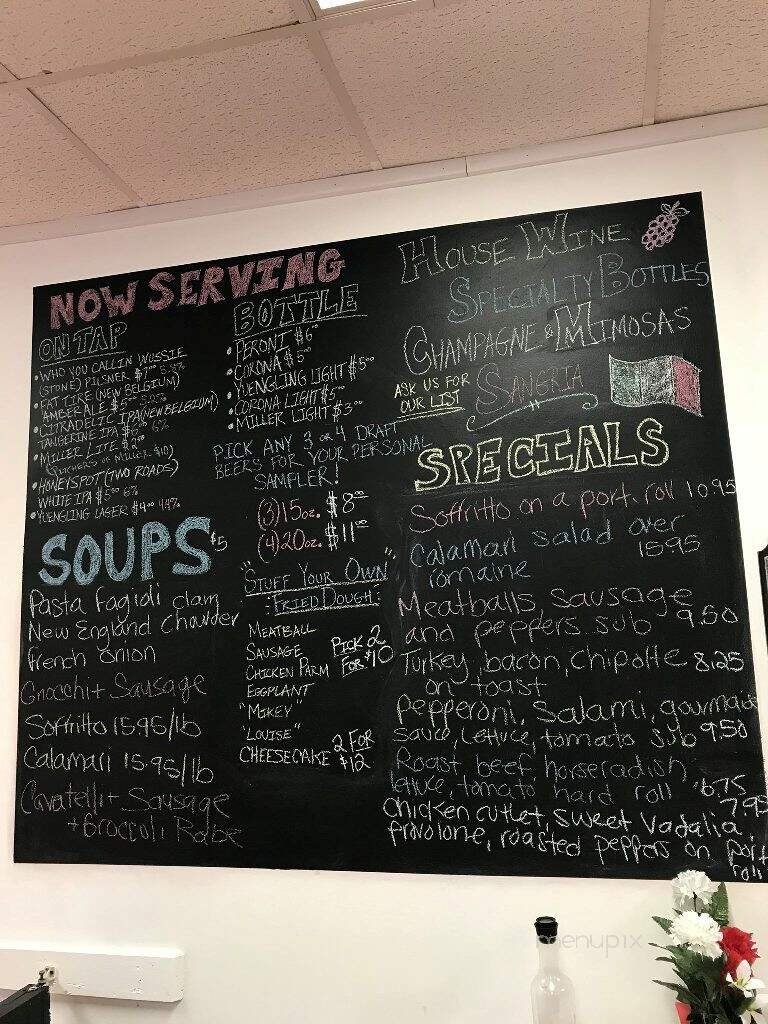 NOW SERVING
ON TAP
• WHO YOU CALLIN WUSSIE
(STONE) PILSNER $7
• FAT TIRE (NEW BELGIUM)
AMBER ALE $5
• CITRADELIC IPA (NEW BELGIUM)
TANGERINE IPA 6%
• MILLER LITE $2.00
(PITCHERS OF MILLER $10)
• HONEYSPOT (TWO ROADS)
WHITE IPA $5.00 6%
• YUENGLING LAGER $4.00 4.4%
BOTTLE
• PERONI $6
• CORONA $5.00
• YUENGLING LIGHT $5.00
• CORONA LIGHT $5.00
• MILLER LIGHT $3.00
PICK ANY 3 OR 4 DRAFT
BEERS FOR YOUR PERSONAL
SAMPLER!
(3) 15 oz. $8.00
(4) 20 oz. $11.00
"STUFF YOUR OWN"
FRIED DOUGH:
MEATBALL
SAUSAGE
CHICKEN PARM
EGGPLANT
"MIKEY"
"LOUISE"
PICK 2
FOR $10
CHEESECAKE 2 FOR
$12
SOUPS $5
Pasta fagioli clam
New England Chowder
french onion
Gnocchi + Sausage
Soffritto 15.95/lb
Calamari 15.95/lb
Cavatelli + Sausage
+ Broccoli Rabe
HOUSE WINE
SPECIALTY BOTTLES
CHAMPAGNE & MIMOSAS
ASK US FOR
OUR LIST
SANGRIA
SPECIALS
Soffritto on a port. roll 10.95
Calamari salad over
romaine 15.95
Meatballs, sausage
and peppers sub 9.50
Turkey, bacon, chipotle 8.25
on toast
Pepperoni, Salami, gourmaise
sauce, lettuce, tomato sub 9.50
Roast beef, horseradish,
lettuce, tomato hard roll 6.75
Chicken cutlet, sweet Vadalia, 7.95
Provolone, roasted peppers on port
roll
menupix